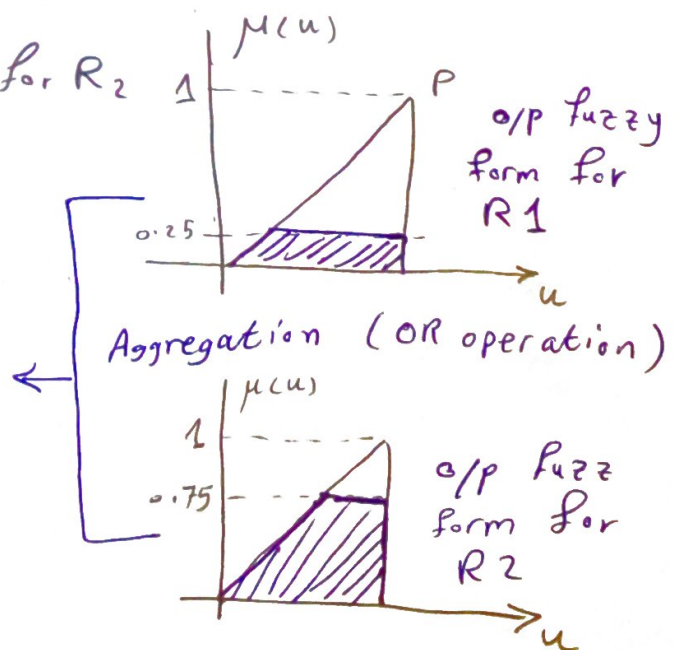 μ(u)
for R2
1
P
o/p fuzzy
form for
R1
0.25
u
Aggregation (OR operation)
μ(u)
1
0.75
o/p fuzz
form for
R2
u